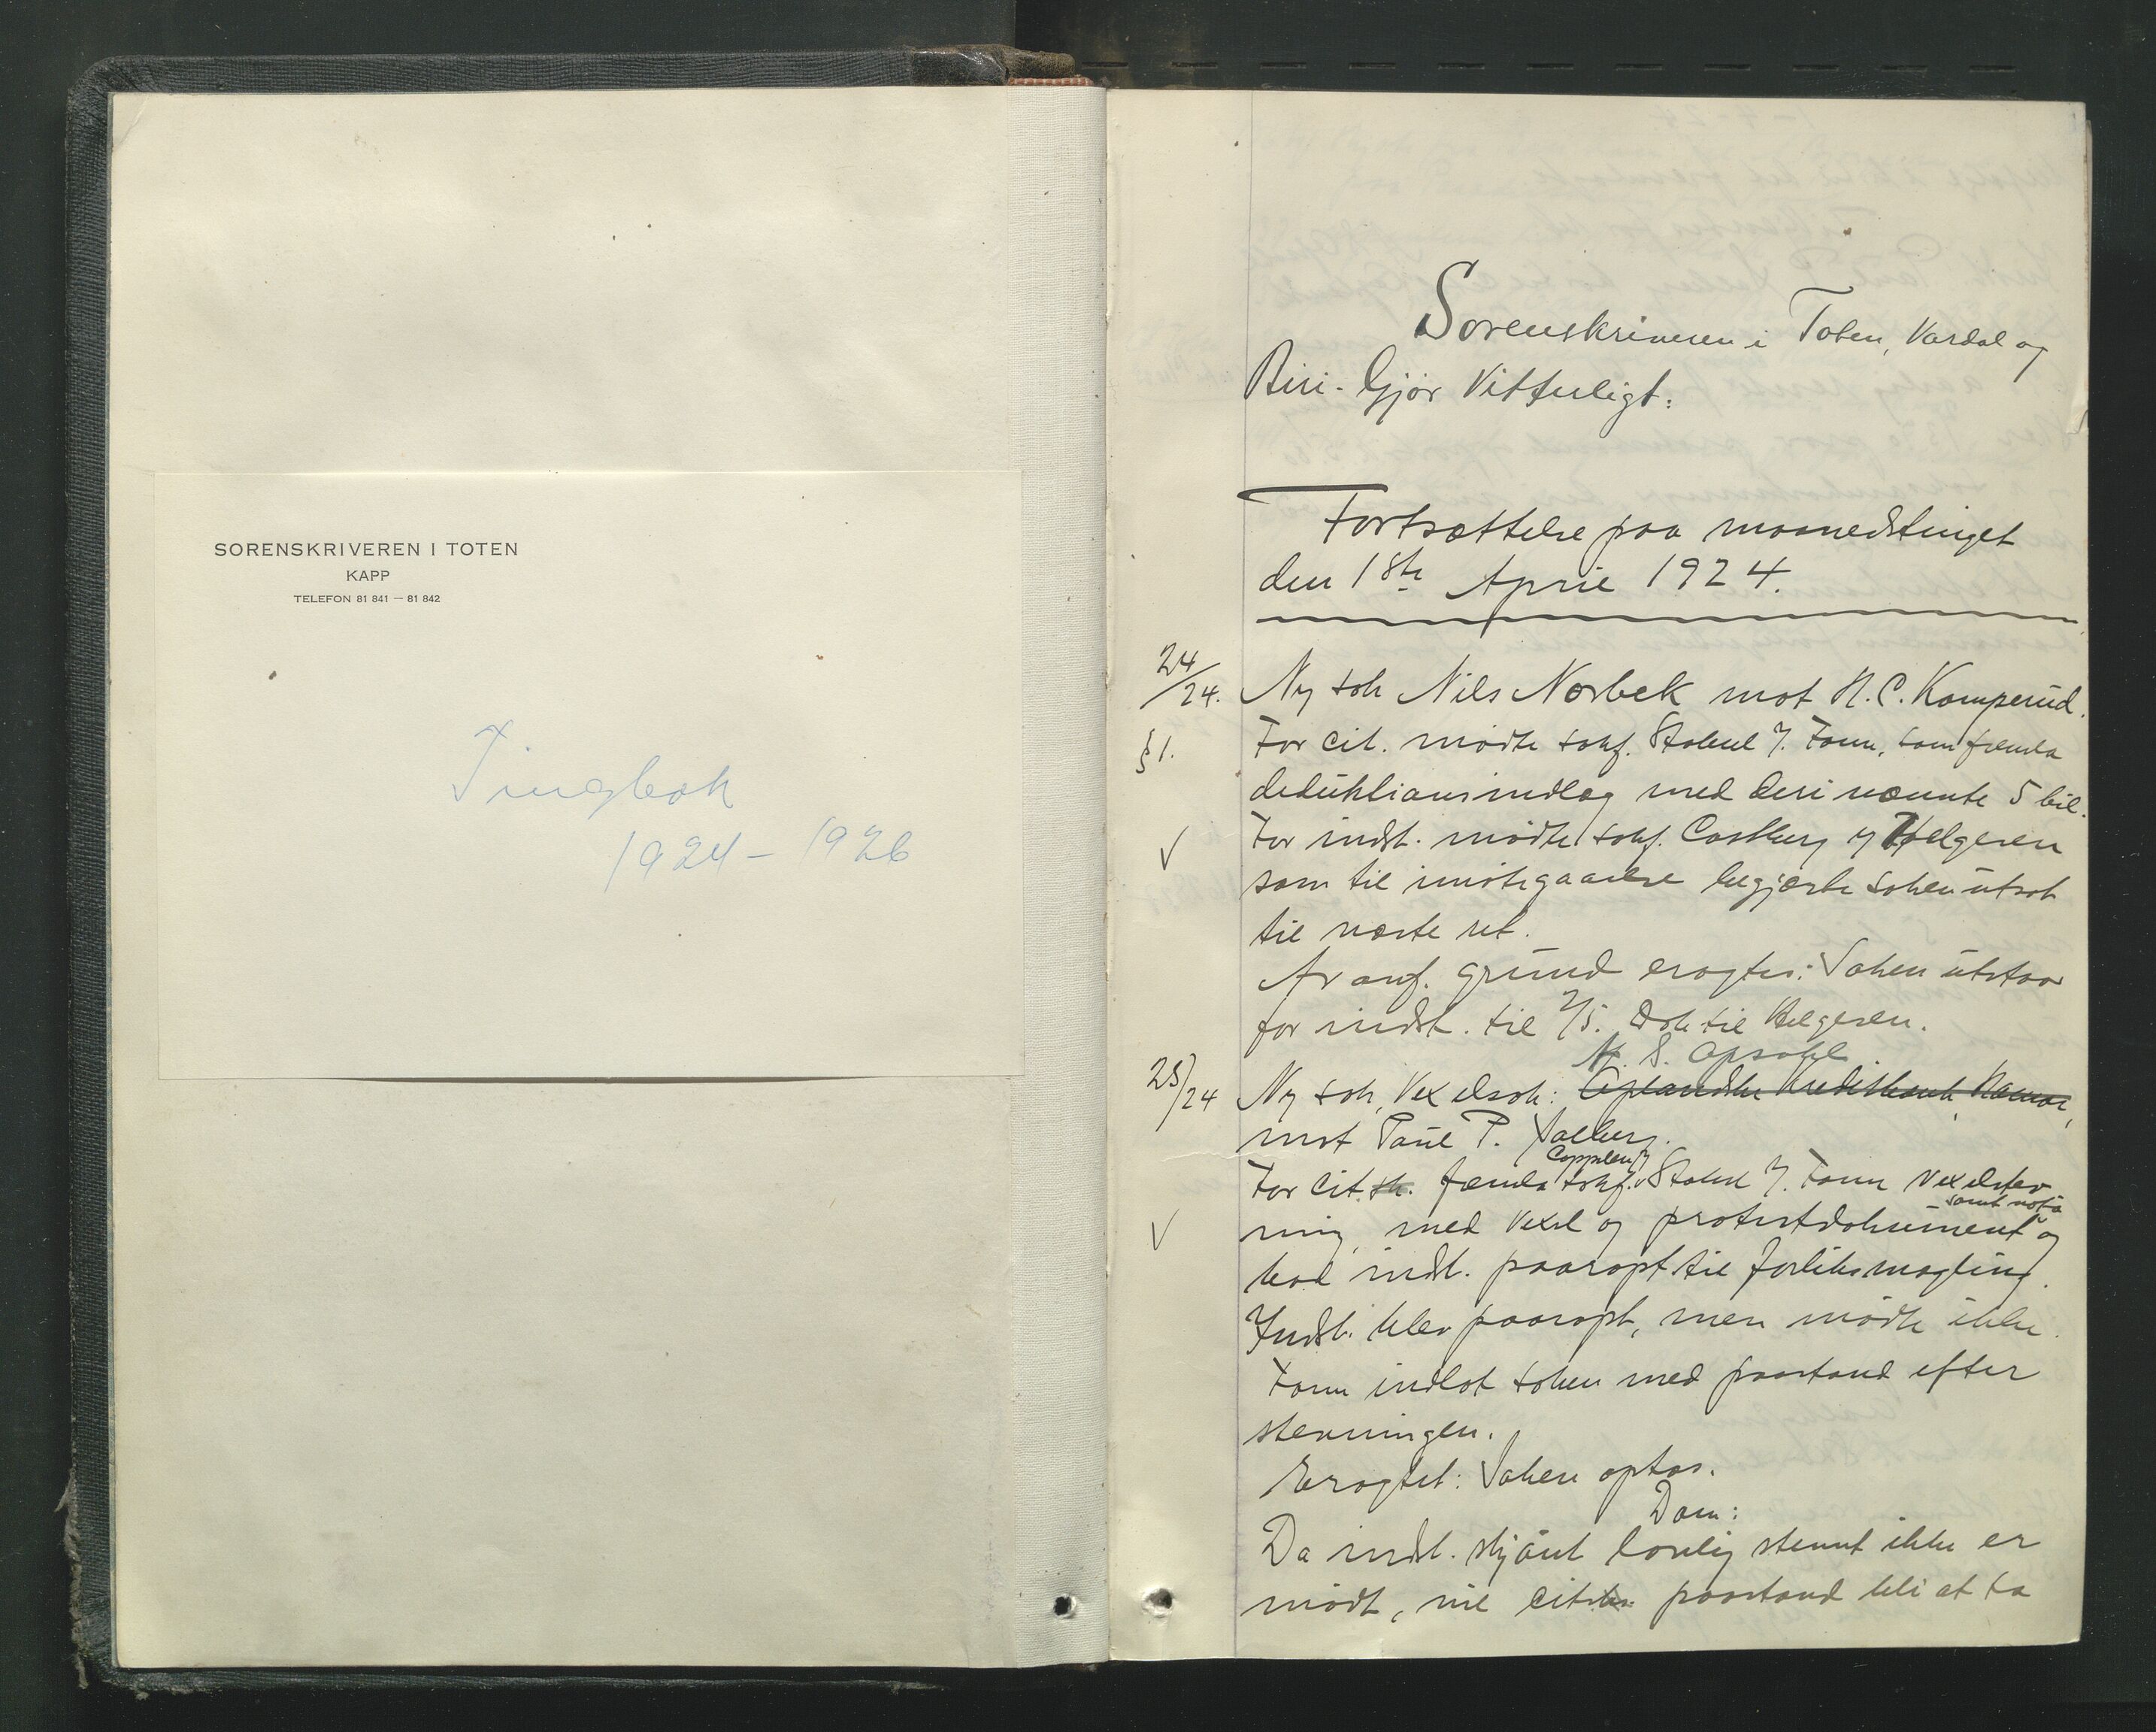 SORENSKRIVEREN I TOTEN
KAPP
TELEFON 81 841 — 81 842
Tingbok
1924 – 1926
Sorenskriveren i Toten, Vardal og
Biri - Gjør Vitterligt:
Fortsættelse paa maanedstinget
den 1ste April 1924.
24/24. Ny sak Nils Norbek mot H. C. Komperud.
§ 1. For cit. mødte sakf. Stabel & Fonn, som fremla
deduktionsindlæg med deri nævnte 5 bil.
For indst. mødte sakf. Castberg & Helgesen
som til imøtegaaelse begjærte saken utsat
til næste ret.
Av anf. grund eragtes: Saken utstaar
for indst. til 2/5. Dok til Helgesen.
N. S. Opsahl
25/24 Ny sak, Vexelsak: Oplandske Kreditbank, Hamar,
mot Paul P. Salberg.
For cit. fremla sakf. Stabel & Fonn Vexelstev
samt nota
ning, med Vexel og protestdokument og
bad indst. paaropt til forliksmægling.
Indst. blev paaropt, men mødte ikke.
Fonn indlot saken med paastand efter
stevningen.
Eragtet: Saken optas.
Dom:
Da indst. skjønt lovlig stevnt ikke er
mødt, vil cit. paastand bli at ta